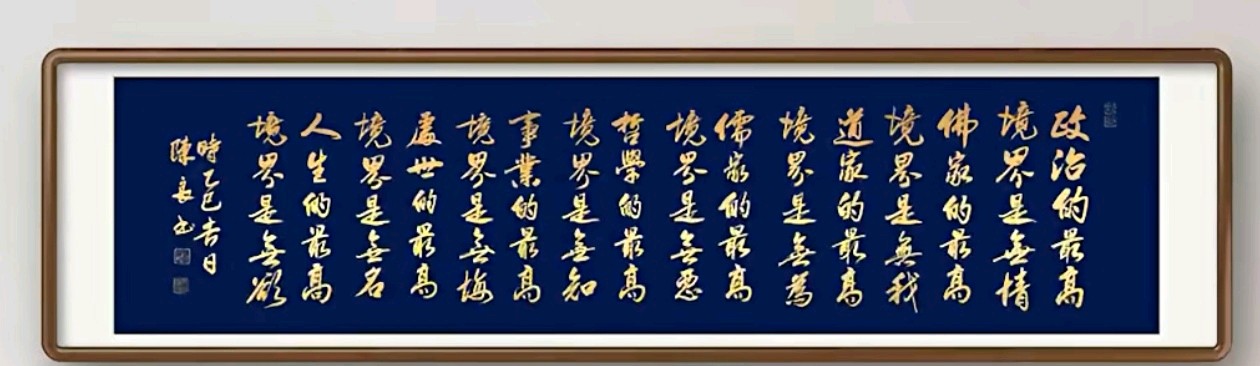 政治的最高
境界是無情
佛家的最高
境界是無我
道家的最高
境界是無為
儒家的最高
境界是無惡
哲學的最高
境界是無知
事業的最高
境界是無悔
處世的最高
境界是無名
人生的最高
境界是無欲
時乙巳吉日
陳良书